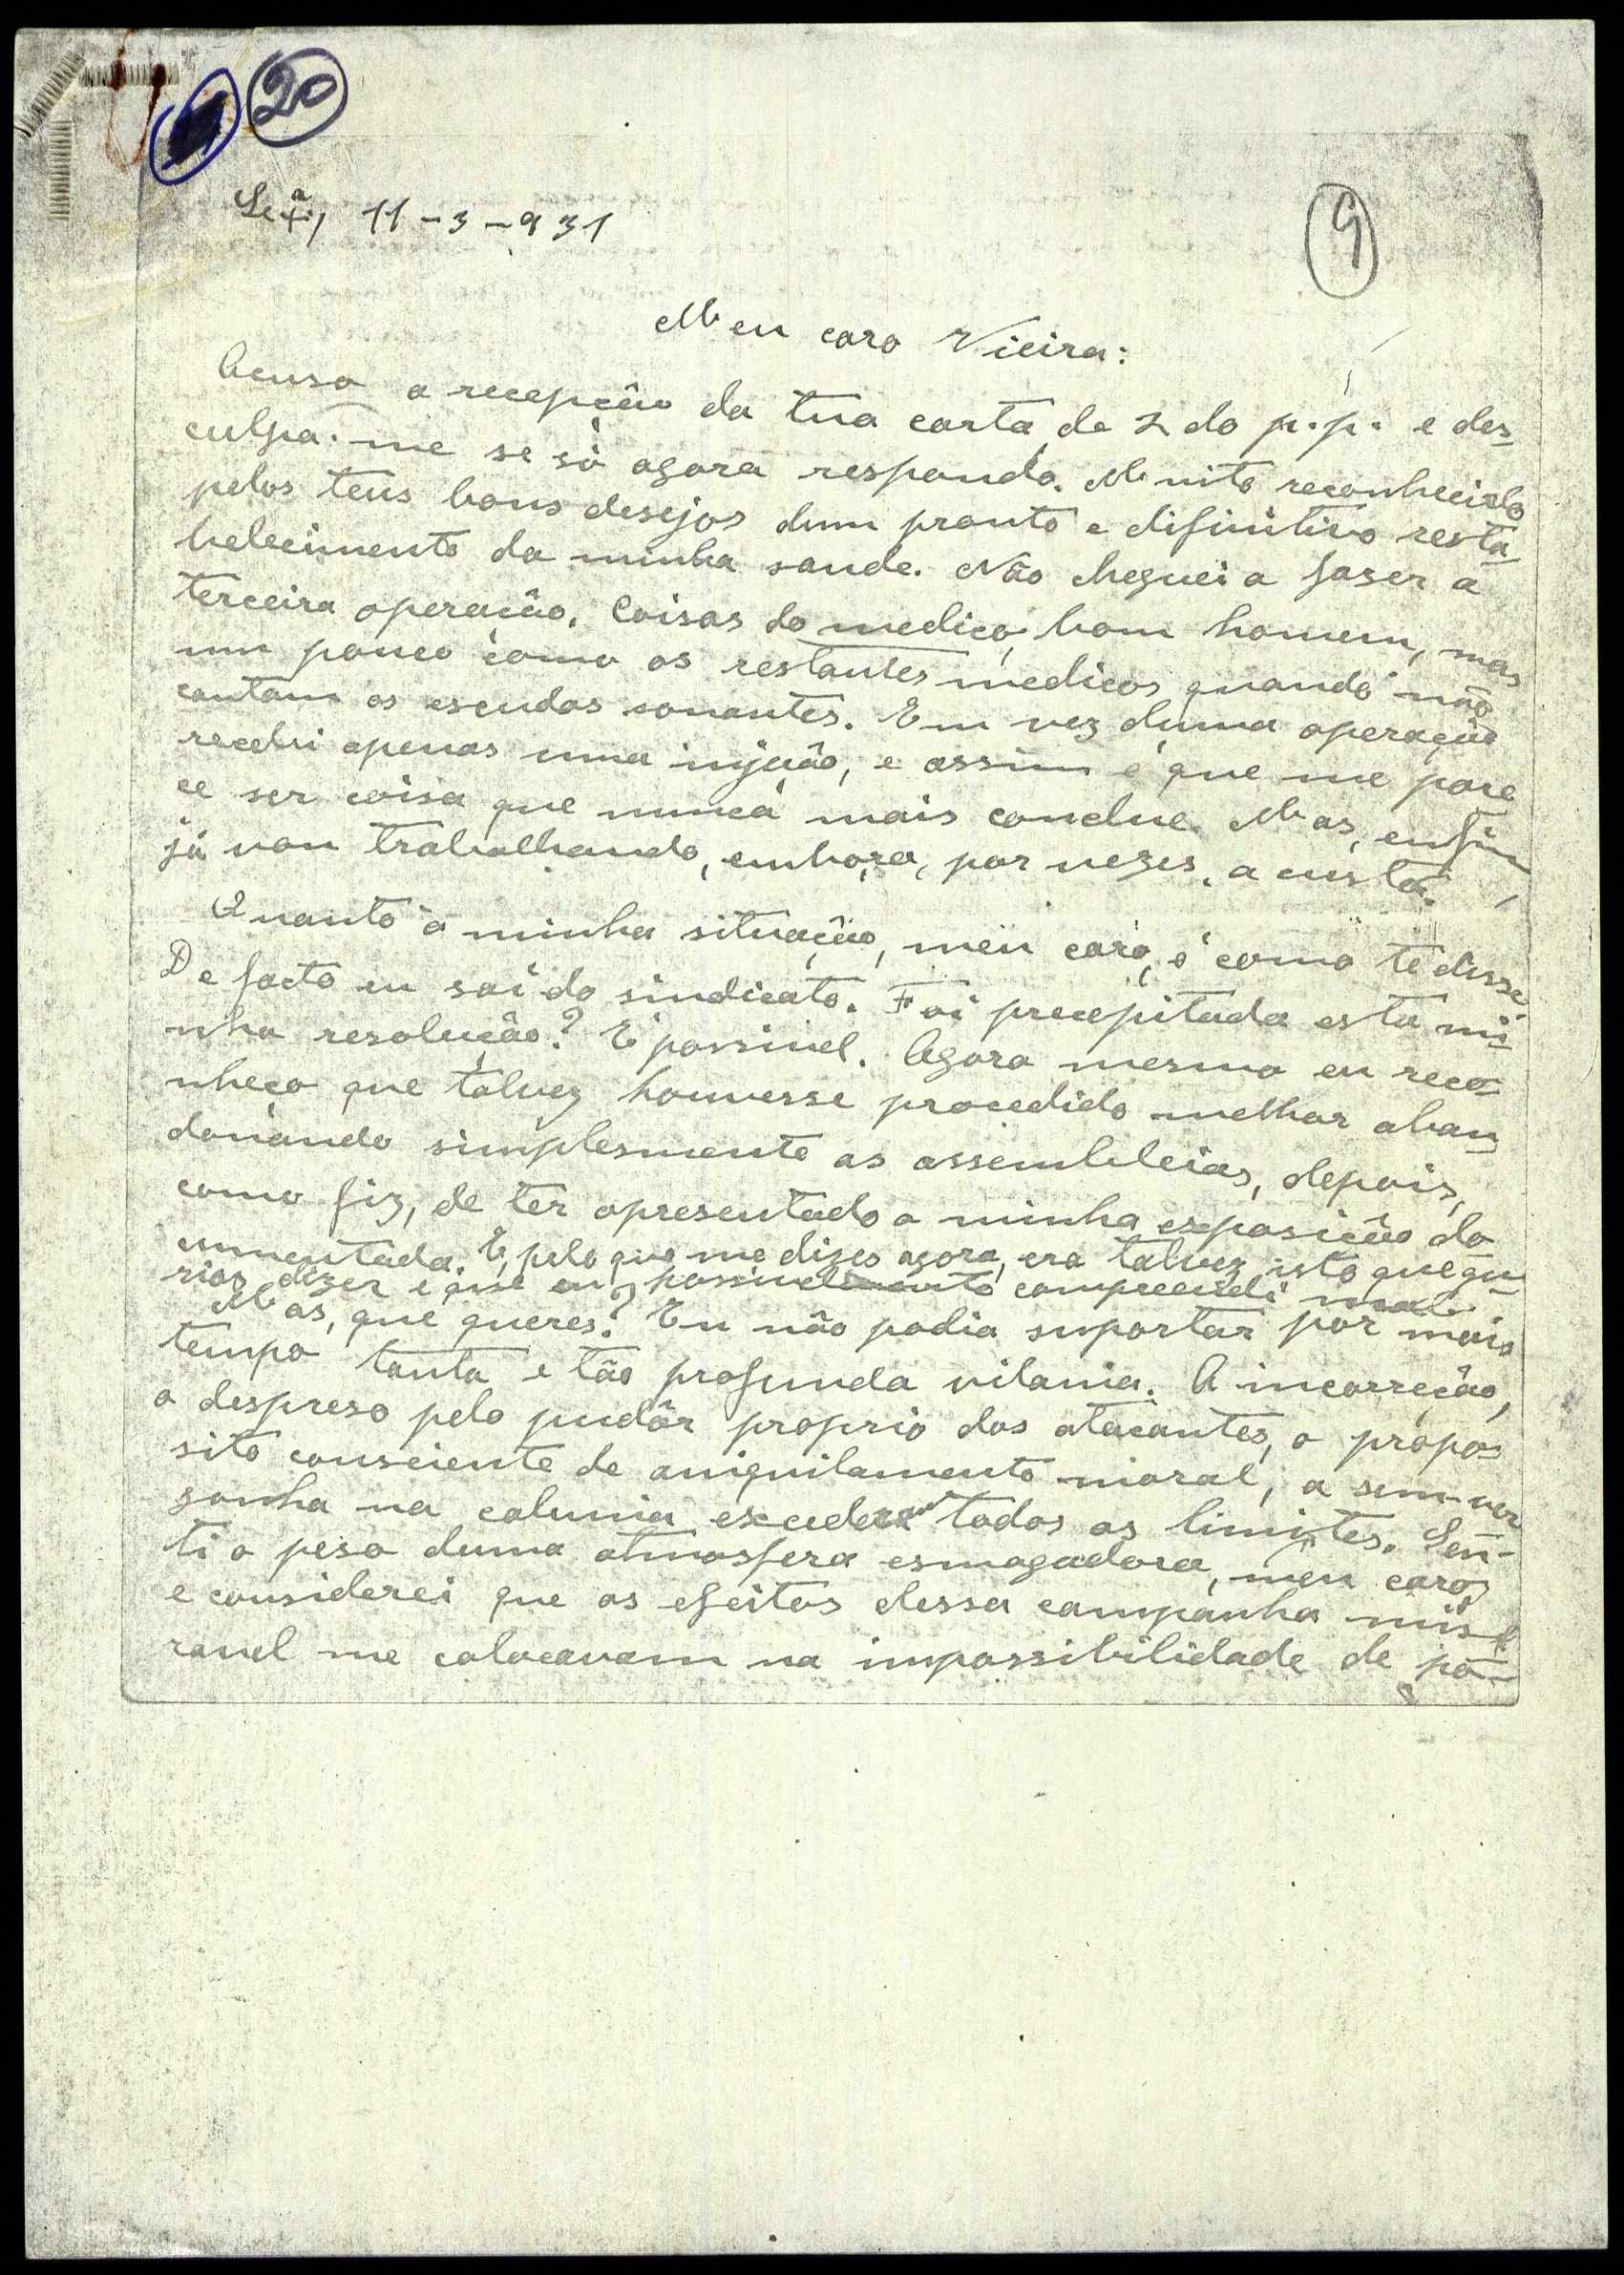 20
Lx.ª, 11-3-931
9
Meu caro Vieira:
Acuso a recepção da tua carta de 2 do p.p. e des-
culpa-me se só agora respondo. Muito reconhecido
pelos teus bons desejos dum pronto e difinitivo resta-
belecimento da minha saude. Não cheguei a faser a
terceira operação. Coisas do medico, bom homem, mas
um pouco como os restantes medicos quando não
cantam os escudos sonantes. Em vez duma operação
recebi apenas uma injeção, e assim é que me pare
ce ser coisa que nunca mais conclue. Mas, enfim,
já vou trabalhando, embora, por vezes, a custo.
Quanto á minha situação, meu caro, é como te disse.
De facto eu saí do sindicato. Foi precepitada esta mi-
nha resolução? É possivel. Agora mesmo eu reco-
nheço que talvez houvesse procedido melhor aban
donando simplesmente as assembleias, depois,
como fiz, de ter apresentado a minha exposição do
cumentada. E, pelo que me dizes agora, era talvez isto que que
rias dizer e que eu possivelmente compreendi mal.
Mas, que queres? Eu não podia suportar por mais
tempo tanta e tão profunda vilania. A incorreção,
o despreso pelo pudôr proprio dos atacantes, o propo
sito consciente de aniquilamento moral, a sem-ver
gonha na calunia excederam todos os limites. Sen-
ti o peso duma atmosfera esmagadora, meu caro,
e considerei que os efeitos dessa campanha mise
ravel me colocavam na impossibilidade de po-